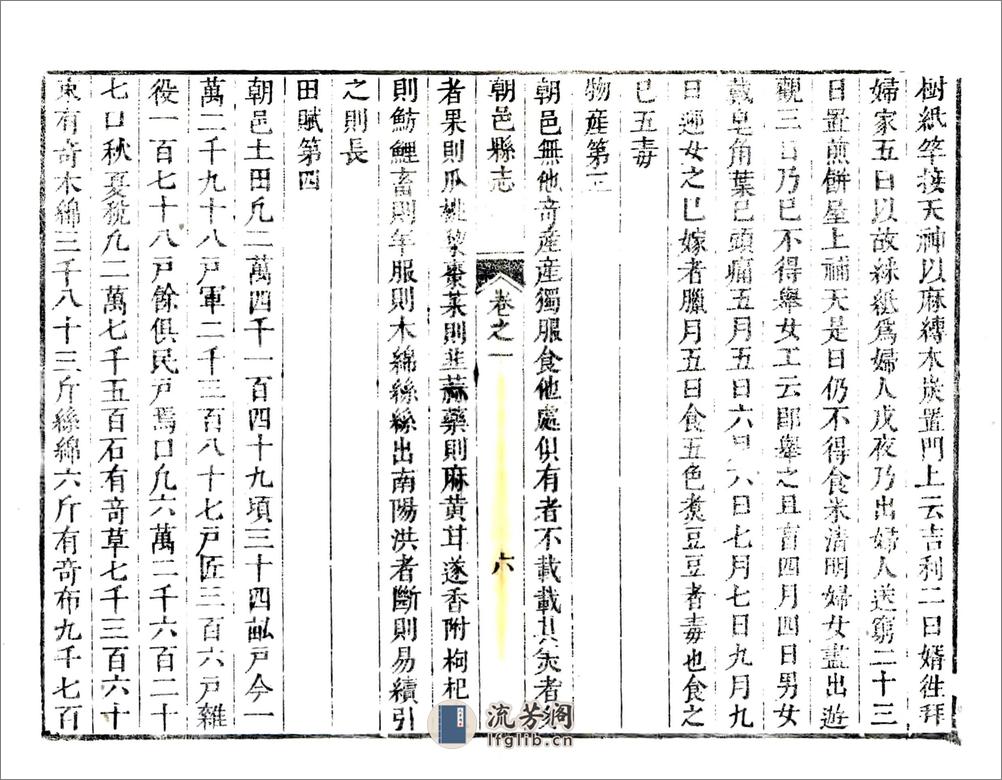 樹紙竿接天神以麻縛木炭置門上云吉利二日婿徃拜
婦家五日以故綵紙爲婦人戍夜乃出婦人送窮二十三
日置煎餅屋上補天是日仍不得食米清明婦女盡出遊
觀三日乃已不得舉女工云卽舉之且盲四月四日男女
戴皂角葉已頭痛五月五日六月六日七月七日九月九
日迎女之已嫁者臘月五日食五色煑豆豆者毒也食之
已五毒
物産第三
朝邑無他奇産産獨服食他處俱有者不載載其尖者
朝邑縣志
卷之一
六
者果則瓜桃棃棗菜則韭蒜藥則麻黄甘遂香附枸杞
則魴鯉畜則羊服則木綿絲絲出南陽洪者斷則易續引
之則長
田賦第四
朝邑土田凡二萬四千一百四十九頃三十四畝戸今一
萬二千九十八戸軍二千三百八十七戸匠三百六戸雜
役一百七十八戸餘俱民戸焉口凡六萬二千六百二十
七口秋夏稅凡二萬七千五百石有奇草七千三百六十
束有奇木綿三千八十三斤絲綿六斤有奇布九千七百
流芳阁
lfglib.cn